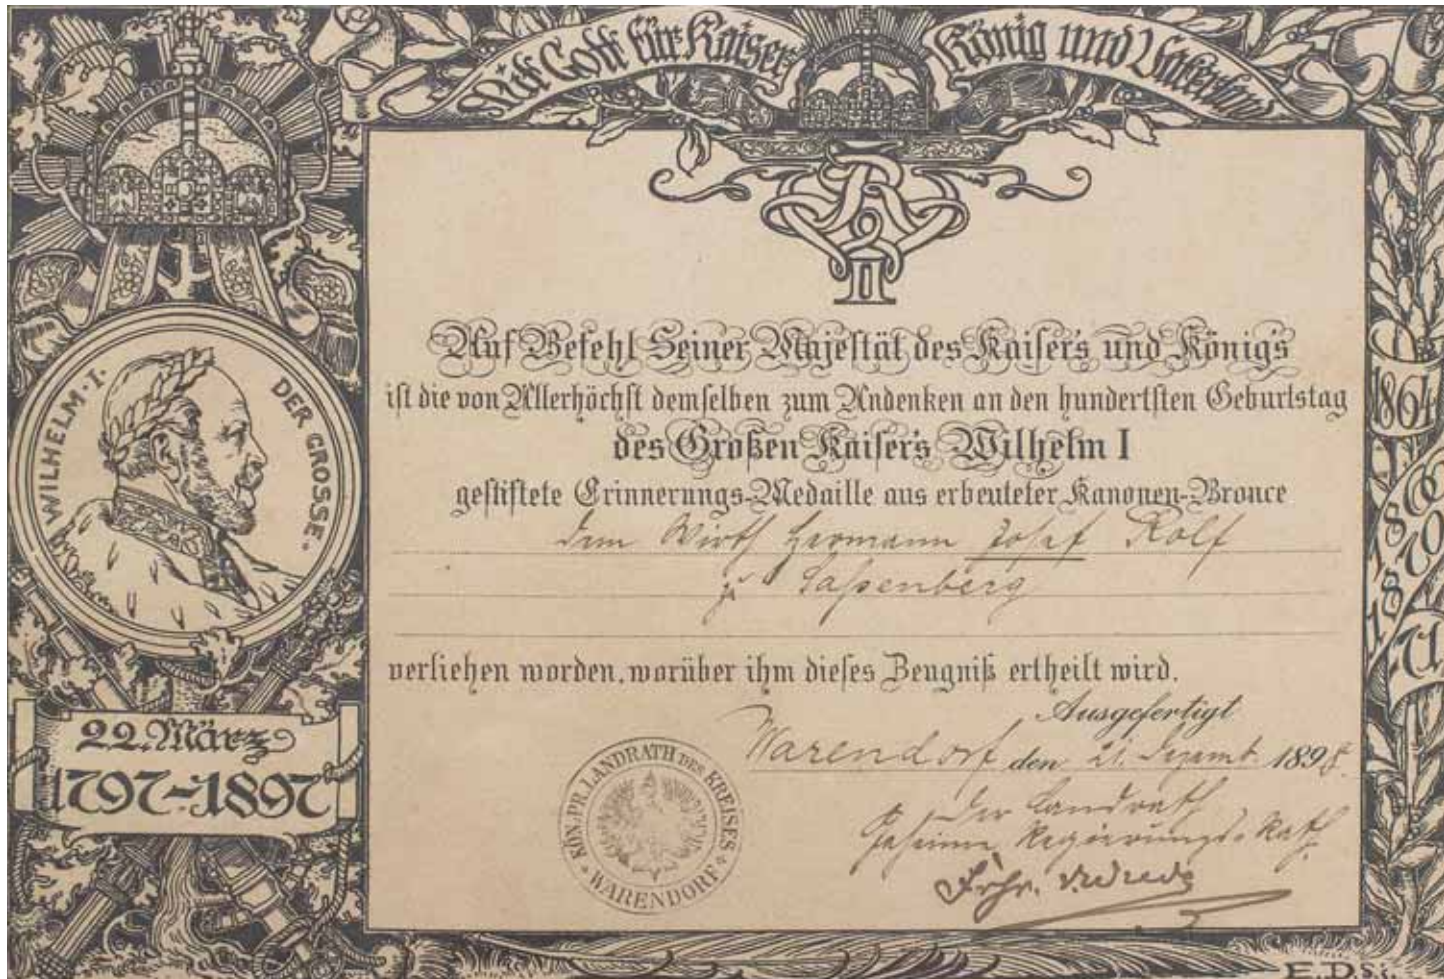 Mit Gott für Kaiser König und Vaterland
WILHELM · I · DER GROSSE.
22. März
1797-1897
II
Auf Befehl Seiner Majestät des Kaisers und Königs
ist die von Allerhöchst demselben zum Andenken an den hundertsten Geburtstag
des Großen Kaisers Wilhelm I
gestiftete Erinnerungs-Medaille aus erbeuteter Kanonen-Bronce
dem Wirth Hermann Josef Rolf
zu Saßenberg
verliehen worden, worüber ihm dieses Zeugniß ertheilt wird.
Ausgefertigt
Warendorf den 21. Dezemb. 1898
Der Landrath
Geheime Regierungs-Rath
Frhr.
KÖN. PR. LANDRATH DES KREISES
WARENDORF
1864
1866
1870
1871